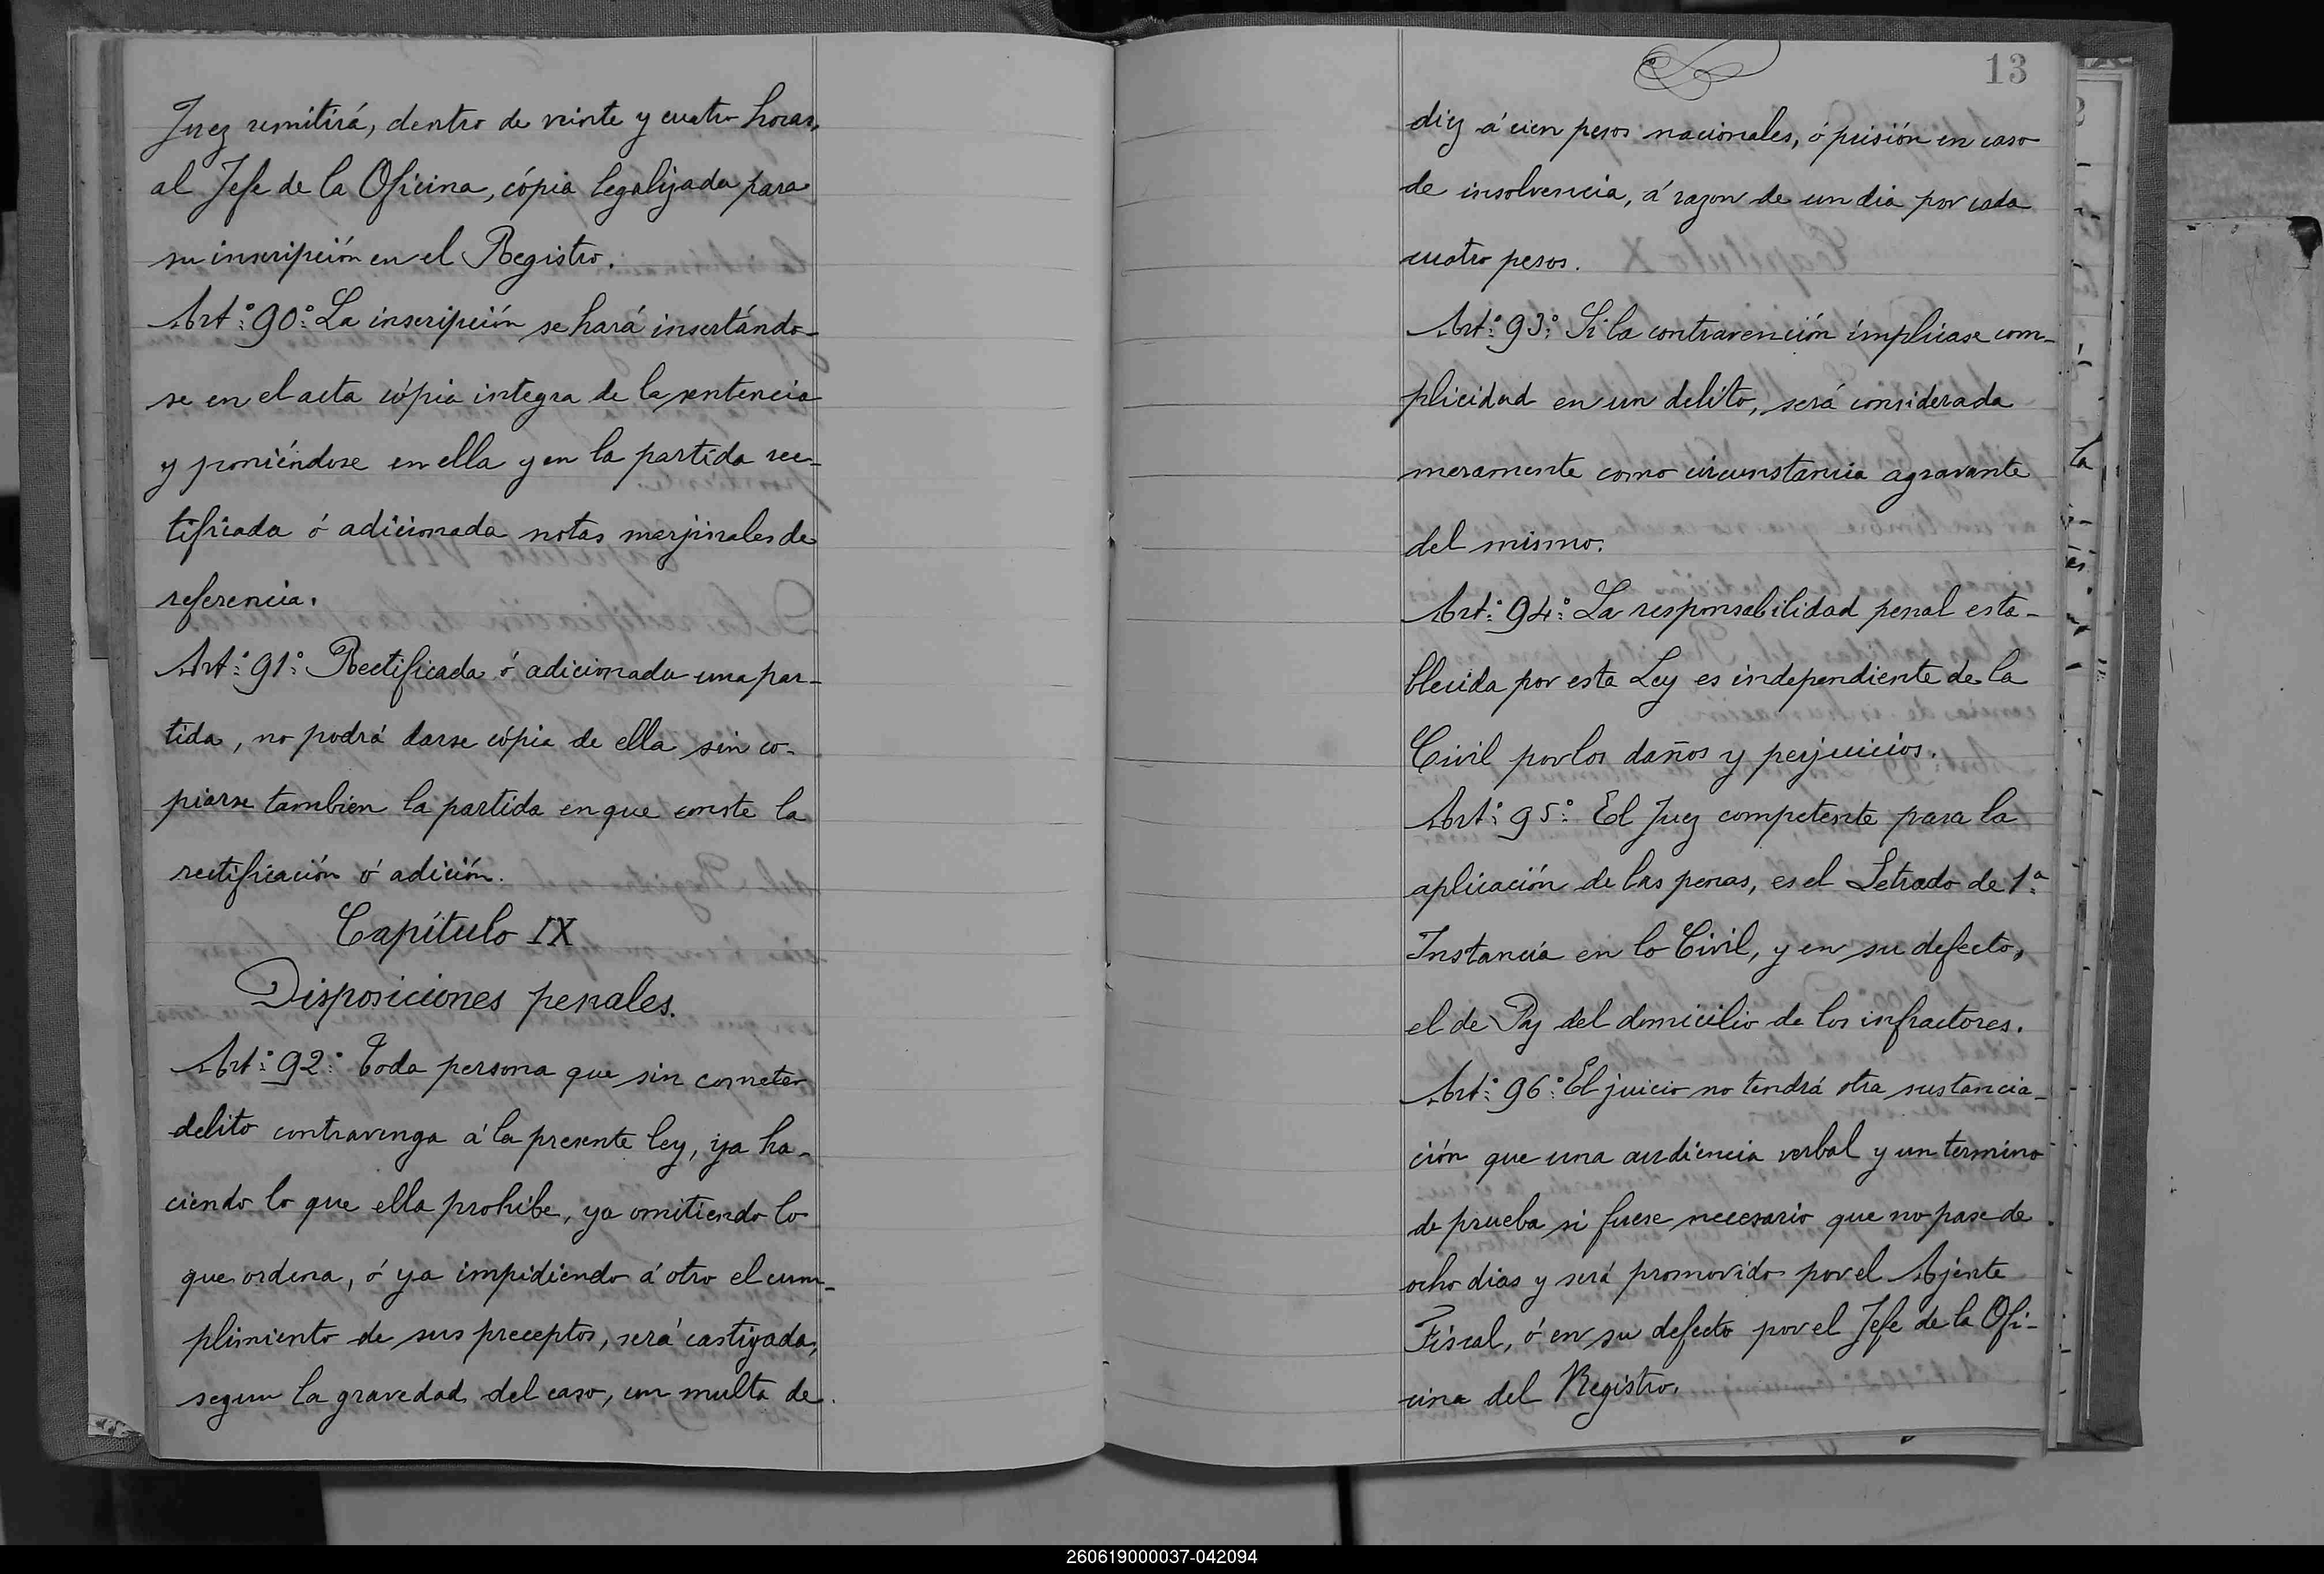 Juez remitirá, dentro de veinte y cuatro horas,
al Jefe de la Oficina, cópia legalizada para
su inscripción en el Registro.
Art.º 90.º La inscripción se hará insertándo-
se en el acta cópia integra de la sentencia
y poniéndose en ella y en la partida rec-
tificada ó adicionada notas marjinales de
referencia.
Art.º 91.º Rectificada ó adicionada una par-
tida, no podrá darse cópia de ella sin co-
piarse tambien la partida en que conste la
rectificación ó adición.
Capítulo IX
Disposiciones penales.
Art.º 92.º Toda persona que sin cometer
delito contravenga á la presente ley, ya ha-
ciendo lo que ella prohibe, ya omitiendo lo
que ordena, ó ya impidiendo á otro el cum-
plimiento de sus preceptos, será castigada,
segun la gravedad del caso, con multa de
13
diez á cien pesos nacionales, ó prisión en caso
de insolvencia, á razon de un dia por cada
cuatro pesos.
Art.º 93.º Si la contravención implicase com-
plicidad en un delito, será considerada
meramente como circunstancia agravante
del mismo.
Art.º 94.º La responsabilidad penal esta-
blecida por esta Ley es independiente de la
Civil por los daños y perjuicios.
Art.º 95.º El Juez competente para la
aplicación de las penas, es el Letrado de 1.ª
Instancia en lo Civil, y en su defecto,
el de Paz del domicilio de los infractores.
Art.º 96.º El juicio no tendrá otra sustancia-
ción que una audiencia verbal y un termino
de prueba si fuese necesario que no pase de
ocho dias y será promovido por el Ajente
Fiscal, ó en su defecto por el Jefe de la Ofi-
cina del Registro.
260619000037-042094